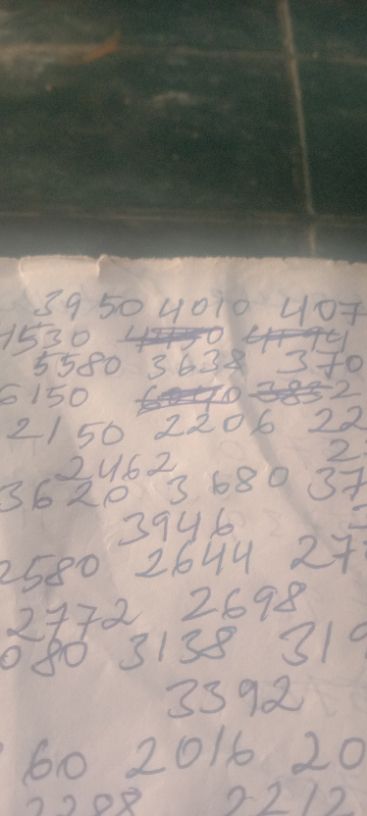 3950 4010 407
4530
5580 3638 370
6150
2150 2206 22
2462 2
3620 3680 37
3946
2580 2644 27
2772 2698
080 3138 31
3392
60 2016 20
2288 2212